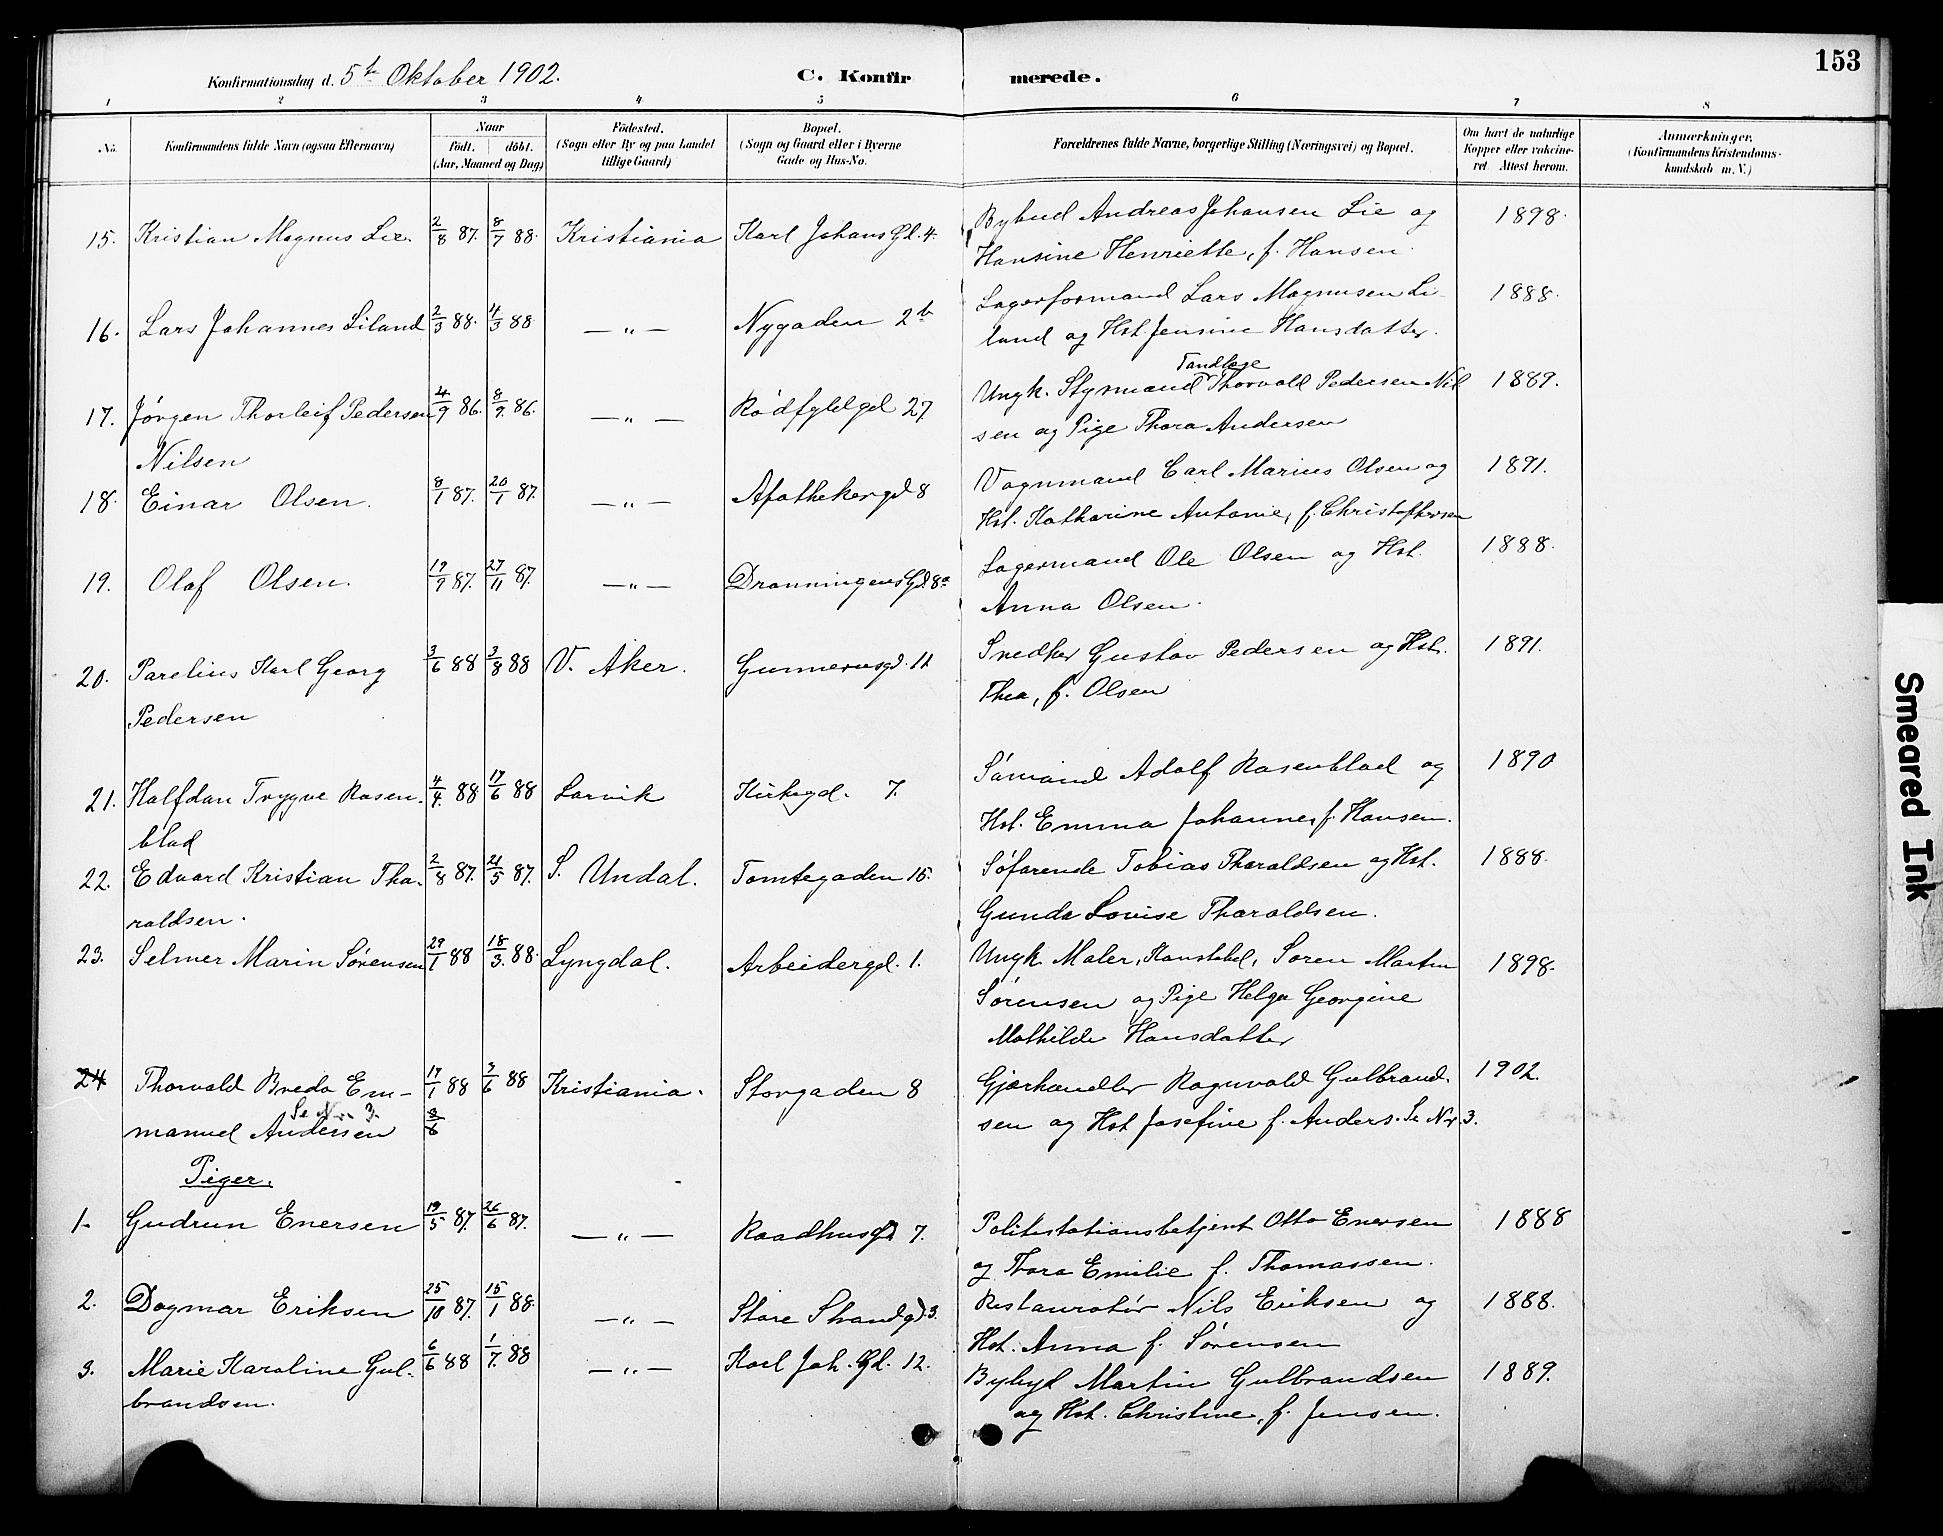 153
Konfirmationsdag d. 5te Oktober 1902. C. Konfir merede.
1 2 3 4 5 6 7 8
No. Konfirmandens fulde Navn (ogsaa Efternavn) Naar født. døbt. (Aar, Maaned og Dag) Fødested. (Sogn eller By og paa Landet tillige Gaard) Bopæl. (Sogn og Gaard eller i Byerne Gade og Hus-No. Forældrenes fulde Navne, borgerlige Stilling (Næringsvei) og Bopæl. Om havt de naturlige Kopper eller vakcineret Attest herom. Anmærkninger. (Konfirmandens Kristendomskundskab m. V.)
15. Kristian Magnus Lie. 2/8 87. 8/7 88. Kristiania Karl Johans Gd. 4. Bybud Andreas Johansen Lie og 1898.
Hansine Henriette, f. Hansen.
16. Lars Johannes Liland 2/3 88. 4/3 88 — „ — Nygaden 2b Lagerformand Lars Magnusen Li- 1888.
land og Hst. Jensine Hansdatter.
Tandlæge
17. Jørgen Thorleif Pedersen 4/9 86. 8/9. 86. — „ — Rødfyldgd 27 Ungk. Styrmand Thorvald Pedersen Nil 1889.
Nilsen sen og Pige Thora Andersen
18. Einar Olsen. 8/1 87. 20/1 87. — „ — Apothekergd 8 Vognmand Carl Marius Olsen og 1891.
Hst. Katharine Antonie, f. Christophersen
19. Olaf Olsen. 19/9 87. 27/11 87. — „ — Dronningens Gd. 8a Lagermand Ole Olsen og Hst. 1888.
Anna Olsen.
20. Parelius Karl Georg 3/6 88 3/8 88 V. Aker. Gunnerusgd. 11 Snedker Gustav Pedersen og Hst. 1891.
Pedersen Thea, f. Olsen
21. Halfdan Trygve Rosen- 4/4. 88 17/6 88 Larvik Kirkegd. 7. Sømand Adolf Rosenblad og 1890
blad Hst. Emma Johanne, f. Hansen.
22. Edvard Kristian Tha- 2/8 87. 21/5 87. S. Undal. Tomtegaden 15. Søfarende Tobias Tharaldsen og Hst. 1888.
raldsen. Gunda Lovise Tharaldsen.
23. Selmer Marin Sørensen 29/1 88 18/3. 88. Lyngdal. Arbeidergd. 1. Ungk. Maler, Konstabel, Søren Martin 1898.
Sørensen og Pige Helga Georgine
Mathilde Hansdatter
24 Thorvald Breda Em- 17/1 88 3/6 88 Kristiania. Storgaden 8 Gjærhandler Ragnvald Gulbrand- 1902.
Se Nr. 3.
manuel Andersen 3/6 sen og Hst Josefine f. Anders. Se Nr. 3.
Piger.
1. Gudrun Enersen 19/5 87. 26/6 87. — „ — Raadhusgd 7. Politistationsbetjent Otto Enersen 1888
og Thora Emilie f. Thomassen.
2. Dagmar Eriksen 25/10 87. 15/1 88. — „ — Store Strandgd. 3. Restauratør Nils Eriksen og 1888.
Hst. Anna f. Sørensen
3. Marie Karoline Gul- 6/6 88 1/7. 88 — „ — Karl Joh. Gd. 12. Martin Gulbrandsen 1889.
brandsen. og Hst. Christine, f. Jensen.
Smeared Ink